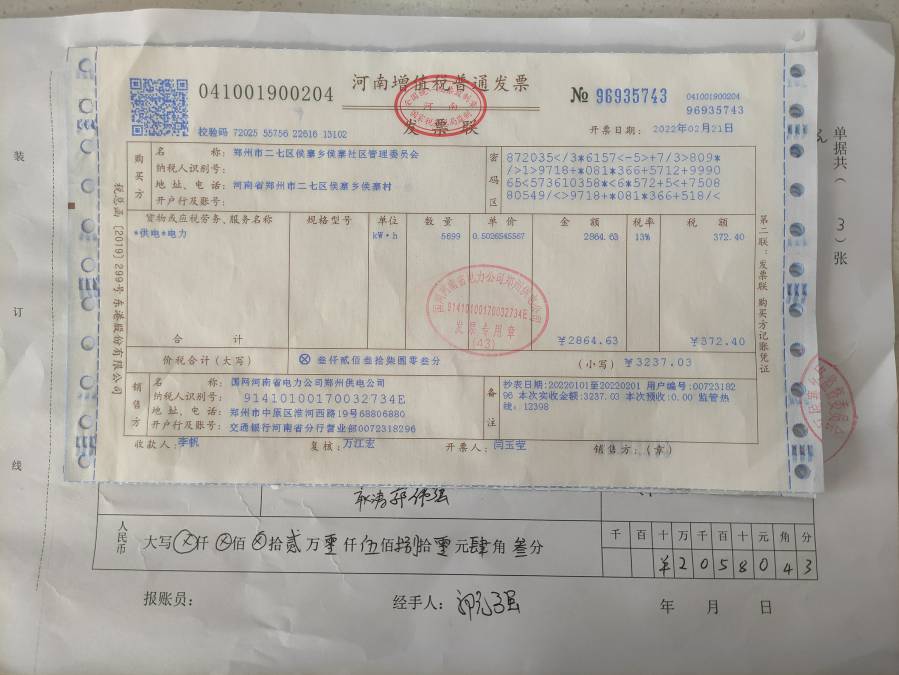 041001900204
河南增值税普通发票
发票联
№ 96935743
041001900204
96935743
校验码 72025 55756 22616 13102
开票日期： 2022年02月21日
税总函〔2019〕299号 东港股份有限公司
购买方
名 称：郑州市二七区侯寨乡侯寨社区管理委员会
纳税人识别号：
地 址、电 话：河南省郑州市二七区侯寨乡侯寨村
开户行及账号：
密码区
872035</3*6157<-5>+7/3>809*
/>1>9718+*081*366+5712+9990
65<573610358*<6*572+5<+7508
80549/<>9718+*081*366+518/<
货物或应税劳务、服务名称 规格型号 单位 数 量 单 价 金 额 税率 税 额
*供电*电力 kW·h 5699 0.5026545567 2864.63 13% 372.40
合 计 ￥2864.63 ￥372.40
价税合计（大写） ⊗ 叁仟贰佰叁拾柒圆零叁分 （小写）￥3237.03
销售方
名 称：国网河南省电力公司郑州供电公司
纳税人识别号：91410100170032734E
地 址、电 话：郑州市中原区淮河西路19号68806880
开户行及账号：交通银行河南省分行营业部0072318296
备注
抄表日期:20220101至20220201 用户编号:00723182
96 本次实收金额:3237.03 本次预收:0.00 监管热
线：12398
收款人：李帆 复核：万江宏 开票人：闫玉莹 销售方：（章）
第二联：发票联 购买方记账凭证
国网河南省电力公司郑州供电公司
91410100170032734E
发票专用章
(43)
单据共（ 3 ）张
装
订
线
人民币
大写 ⊗仟⊗佰⊗拾贰万零仟伍佰捌拾零元肆角叁分
千 百 十 万 千 百 十 元 角 分
￥ 2 0 5 8 0 4 3
报账员：
经手人：
年 月 日